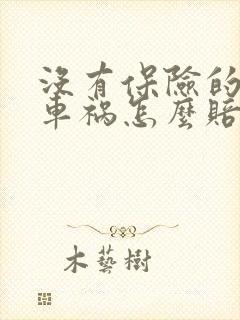 沒有保險的
車禍怎麼賠
木藝樹